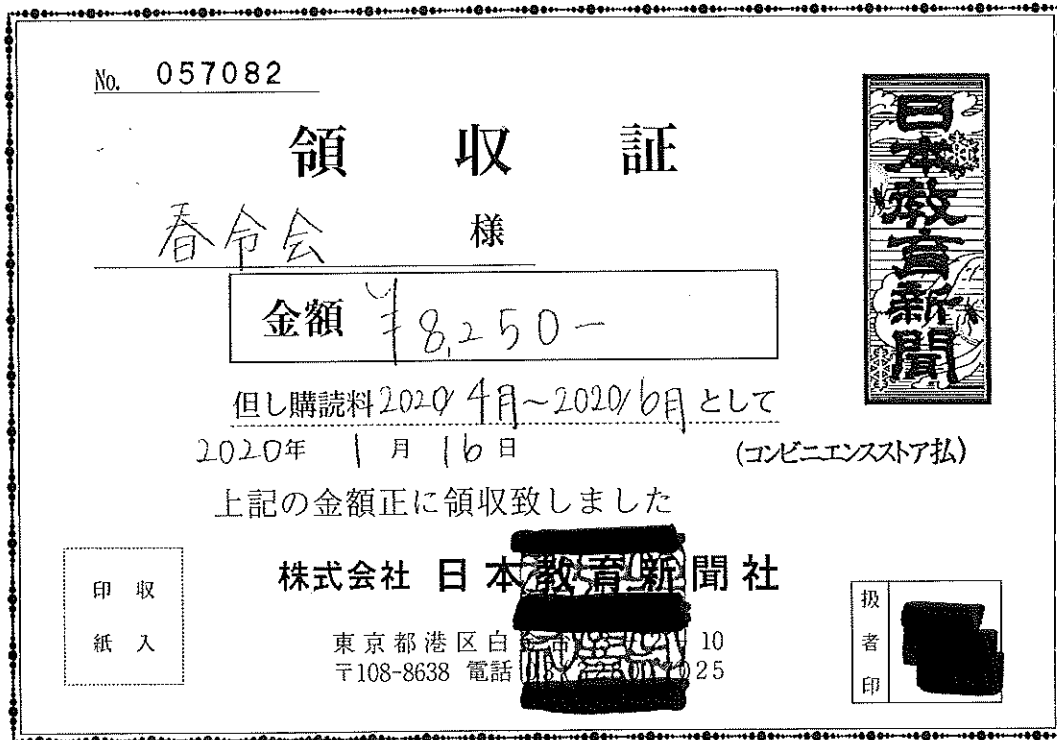 No. 057082
領収証
春令会 様
金額 ¥8,250-
但し購読料2020/4月~2020/6月として
2020年 1月 16日
(コンビニエンスストア払)
上記の金額正に領収致しました
株式会社 日本教育新聞社
東京都港区白 10
〒108-8638 電話 025
収入
印紙
扱者印
日本教育新聞